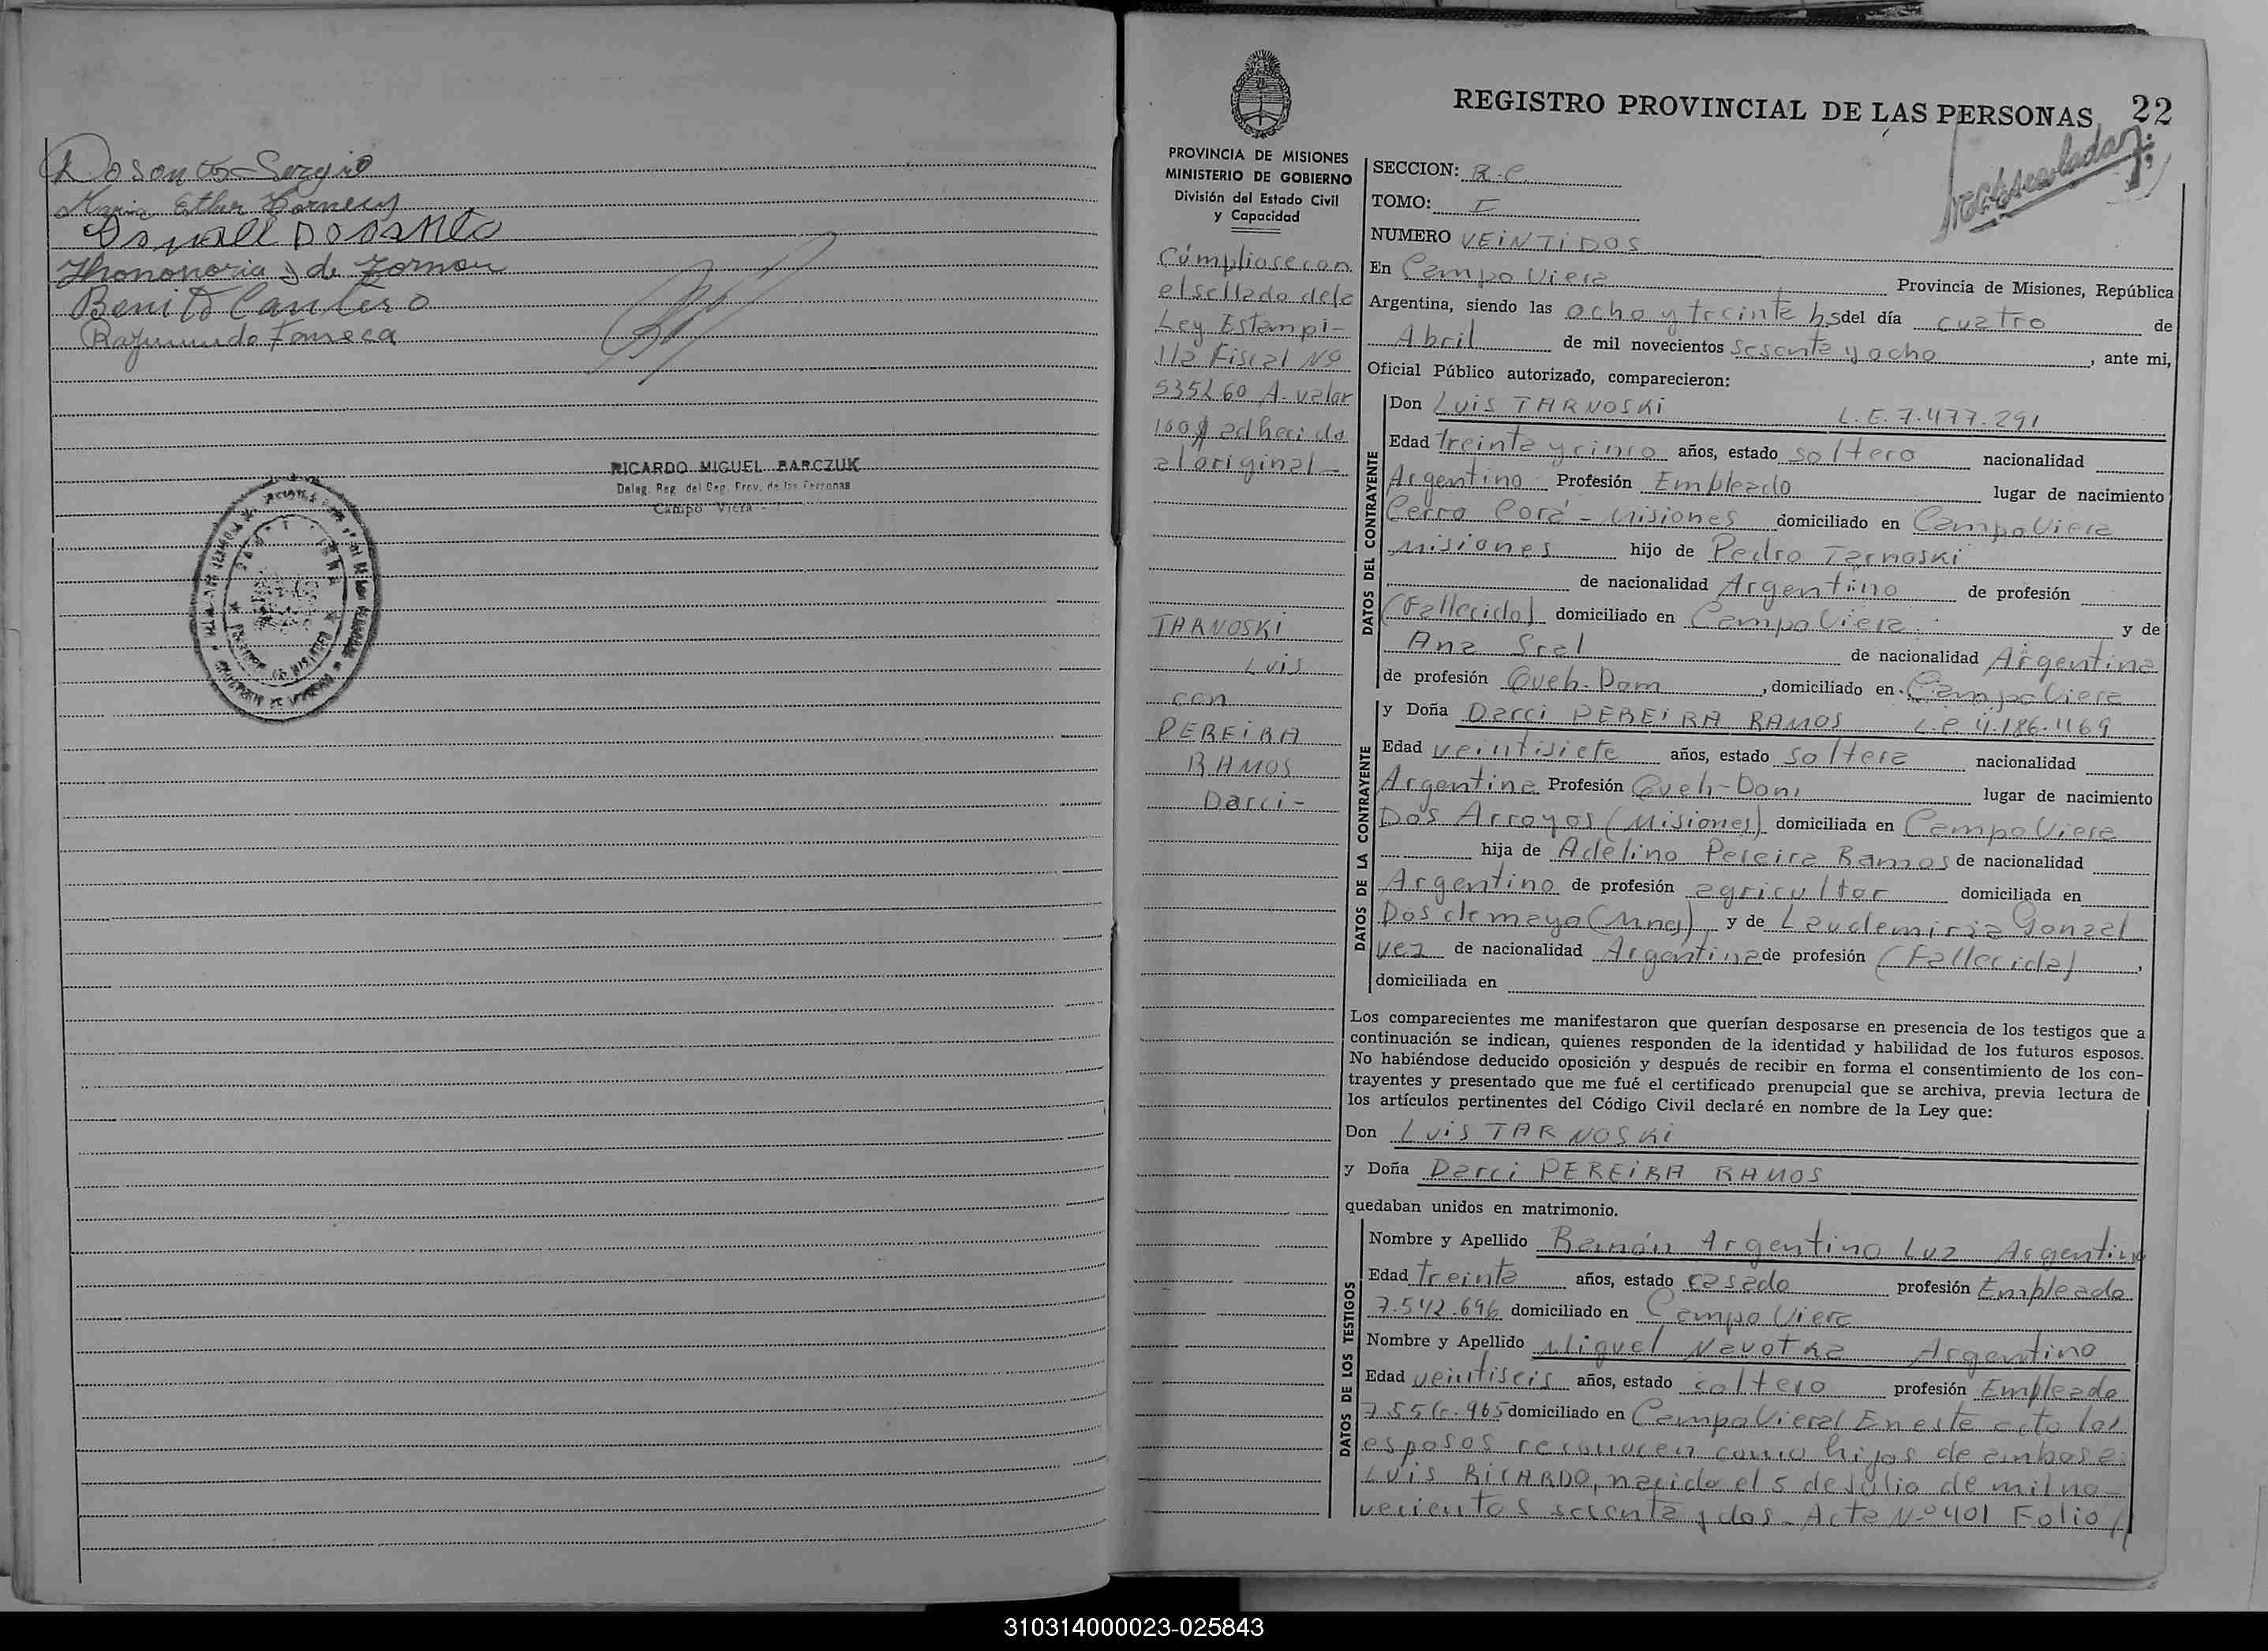 Dosantos Sergio
Maria Esther Horneus
Dosanto
Hononoria S de Zornou
Benito Cantero
Raymundo Fonseca
RICARDO MIGUEL BARCZUK
Deleg. Reg. del Reg. Prov. de las Personas
Campo Viera
REGISTRO PROVINCIAL DE LAS PERSONAS 22
PROVINCIA DE MISIONES
MINISTERIO DE GOBIERNO
División del Estado Civil
y Capacidad
Cúmpliose con
el sellado de la
Ley Estampi-
lla Fiscal Nº
535260 A. valor
100$ adherido
al original-
TARNOSKI
Luis
con
PEREIRA
RAMOS
Darci-
SECCION: R.C.
TOMO: I
NUMERO VEINTIDOS
En Campo Viera Provincia de Misiones, República
Argentina, siendo las ocho y treinta hs del día cuatro de
Abril de mil novecientos sesenta y ocho, ante mi,
Oficial Público autorizado, comparecieron:
DATOS DEL CONTRAYENTE
Don Luis TARNOSKI L.E. 7.477.291
Edad treinta y cinco años, estado soltero nacionalidad
Argentino Profesión Empleado lugar de nacimiento
Cerro Corá - Misiones domiciliado en Campo Viera
Misiones hijo de Pedro Tarnoski
de nacionalidad Argentino de profesión
(Fallecido) domiciliado en Campo Viera y de
Ana Sral de nacionalidad Argentina
de profesión Queh. Dom, domiciliado en Campo Viera
DATOS DE LA CONTRAYENTE
y Doña Darci PEREIRA RAMOS L.C. 4.186.469
Edad veintisiete años, estado soltera nacionalidad
Argentina Profesión Queh-Dom lugar de nacimiento
Dos Arroyos (Misiones) domiciliada en Campo Viera
hija de Adelino Pereira Ramos de nacionalidad
Argentino de profesión agricultor domiciliada en
Dos de mayo (Mnes) y de Laudemiria Gonzal
vez de nacionalidad Argentina de profesión (Fallecida),
domiciliada en
Los comparecientes me manifestaron que querían desposarse en presencia de los testigos que a
continuación se indican, quienes responden de la identidad y habilidad de los futuros esposos.
No habiéndose deducido oposición y después de recibir en forma el consentimiento de los con-
trayentes y presentado que me fué el certificado prenupcial que se archiva, previa lectura de
los artículos pertinentes del Código Civil declaré en nombre de la Ley que:
Don Luis TARNOSKi
y Doña Darci PEREIRA RAMOS
quedaban unidos en matrimonio.
DATOS DE LOS TESTIGOS
Nombre y Apellido Ramón Argentino Luz Argentino
Edad treinta años, estado casado profesión Empleado
7.542.696 domiciliado en Campo Viera
Nombre y Apellido Miguel Navotka Argentino
Edad veintiseis años, estado soltero profesión Empleado
965 domiciliado en Campo Viera/ En este acto los
esposos reconocen como hijos de ambos a:
LUIS RICARDO, nacido el 5 de Julio de mil no-
vecientos sesenta y dos - Acta Nº 401 Folio
310314000023-025843